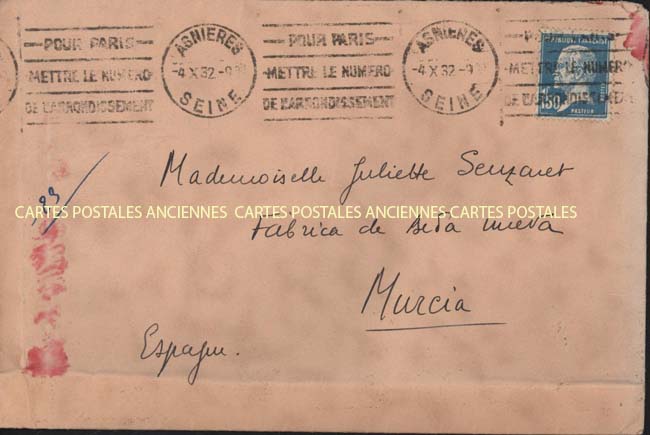 POUR PARIS
METTRE LE NUMERO
DE L'ARRONDISSEMENT
ASNIERES
4 X 32
SEINE
POUR PARIS
METTRE LE NUMERO
DE L'ARRONDISSEMENT
ASNIERES
4 X 32
SEINE
POUR PARIS
METTRE LE NUMERO
DE L'ARRONDISSEMENT
REPUBLIQUE FRANCAISE
1F50
PASTEUR
Mademoiselle Juliette
CARTES POSTALES ANCIENNES CARTES POSTALES ANCIENNES CARTES POSTALES
Fabrica de seda nueva
Murcia
Espagne.